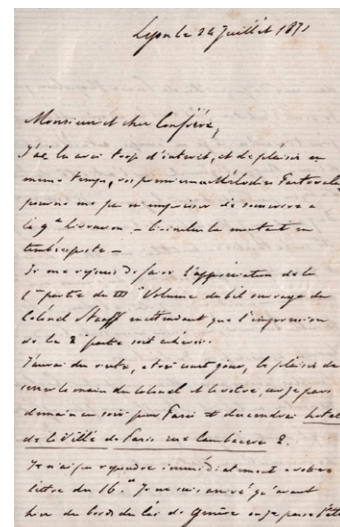 Lyon le 24 Juillet 1871
Monsieur et cher Confrère,
J'ai lu avec trop d'interet, et de plaisir en
même temps, vos premieres Mélodies Pastorales,
pour ne pas m'empresser de souscrire a
la 9e livraison – le montant en
timbres poste –
Je me réserve de faire l'appréciation de la
1e partie du IIIe Volume du bel ouvrage du
Colonel Staaff en attendant que l'impression
de la 2e partie soit achevée.
J'aurai du reste, avant jours, le plaisir de
serrer la main du Colonel et la votre, car je pars
demain au soir pour Paris et descendrai hotel
de la Ville de Paris rue 2.
Je n'ai pu repondre immédiatement a votre
lettre du 16. Je ne suis arrivé qu'avant
hier des bords du lac de Genève où je passe l'été